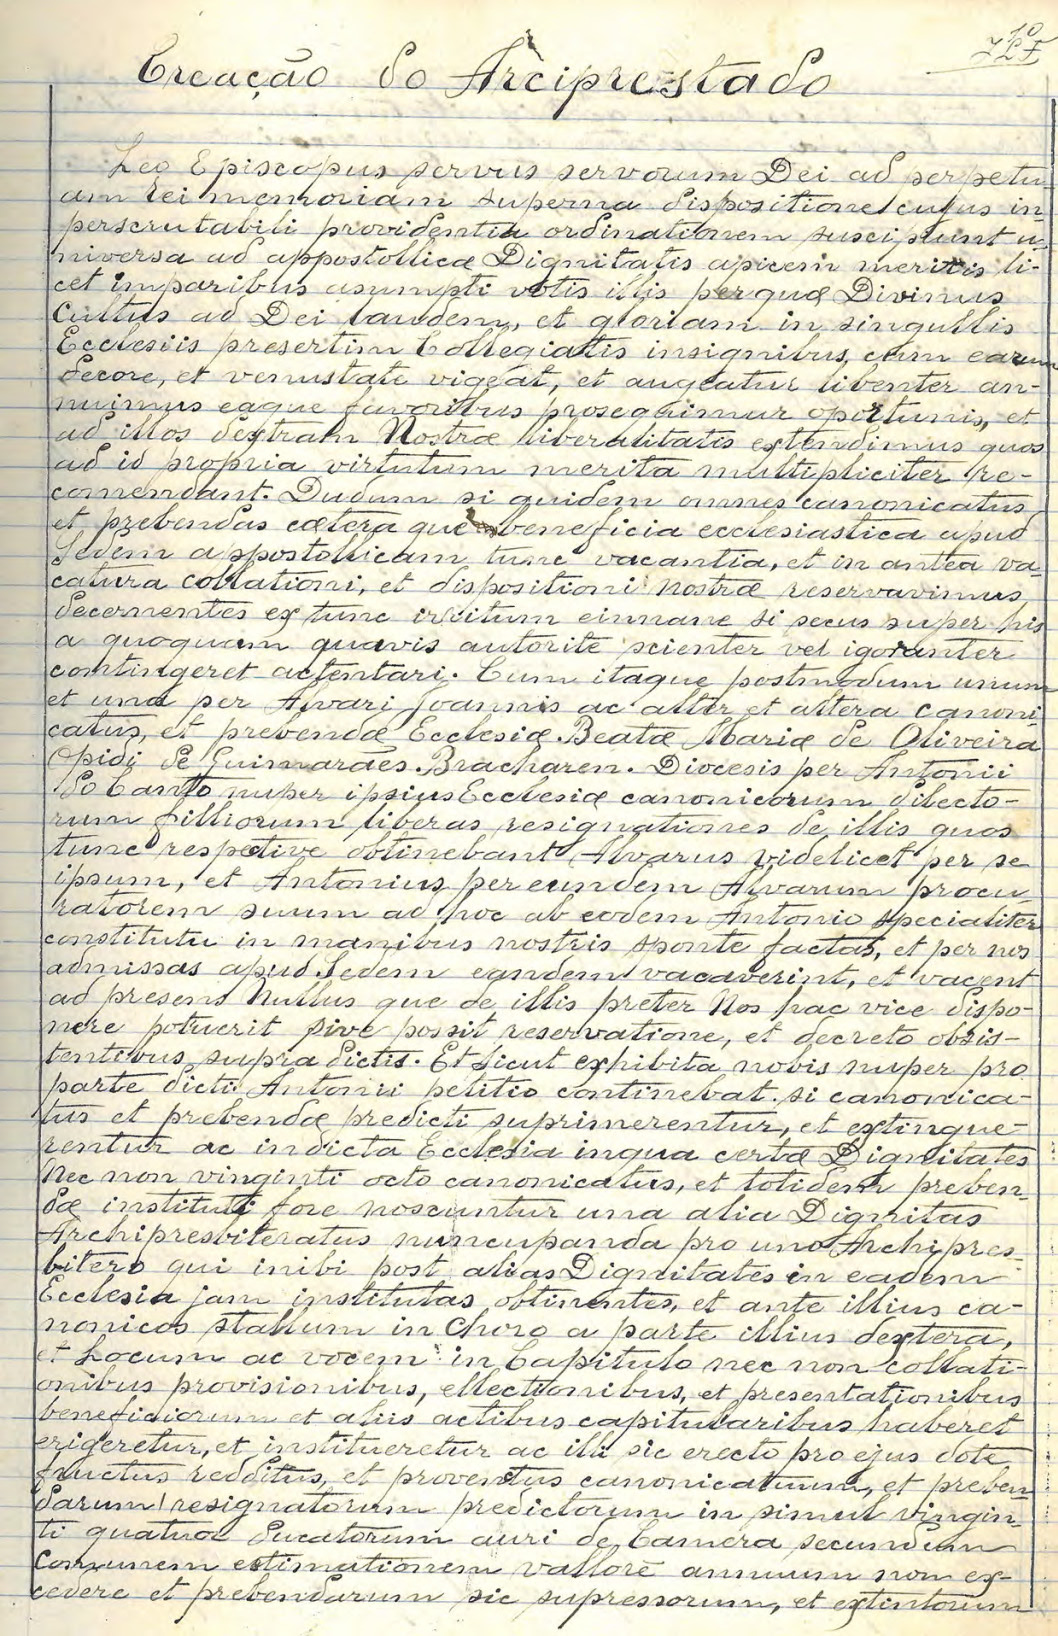 10
Creação do Arciprestado
Leo Episcopus servus servorum Dei ad perpetu
am rei memoriam superna dispositione cujus in
perscrutabili providentia ordinationem suscipiunt u-
niversa ad appostollicæ Dignitatis apicem meritis li-
cet imparibus asumpti votis illis per quæ Divinus
Cultus ad Dei laudem, et gloriam in singullis
Ecclesiis presertim Collegiatis insignibus, cum earum
decore, et venustate vigeat, et augeatur libenter an-
nuimus eaque favoribus prosequimur oportunis, et
ad illos dextram Nostræ liberalitatis extendimus quos
ad id propria virtutum merita multipliciter re-
comendant. Dudum si quidem omnes canonicatus
et prebendas cætera que beneficia ecclesiastica apud
Sedem appostollicam tunc vacantia, et in antea va-
catura collationi, et dispositioni nostræ reservavimus
decernentes ex tunc irritum einnane si secus super his
a quoquam quavis autorite scienter vel igoranter
contingeret actentari. Cum itaque postmodum unum
et una per Alvari Joannis ac alter et altera canoni
catus, et prevendæ Ecclesiæ Beatæ Mariæ de Oliveira
Opidi de Guimarães. Bracharen. Diocesis per Antonii
do Canto nuper ipsius Ecclesiæ canonicorum dilecto-
rum filliorum liberas resignationes de illis quos
tunc respective obtinebant Alvarus videlicet per se
ipsum, et Antonius per eundem Alvarum procu-
ratorem suum ad hoc ab eodem Antonio specialiter
constitutu in manibus nostris sponte factas, et per nos
admissas apud Sedem eandem vacaverint, et vacent
ad presens Nullus que de illis preter Nos hac vice dispo-
nere potuerit sive possit reservatione, et decreto obsis-
tentibus supra dictis. Et sicut exhibita nobis nuper pro
parte dicti Antonii petitio continebat. si canonica-
tus et prebendæ predicti suprimerentur, et extingue-
rentur ac indicta Ecclesia inqua certæ Dignitates
Nec non vinginti octo canonicatus, et totidem preben-
dæ instituti fore noscuntur una alia Dignitas
Archipresbiteratus nuncupanda pro uno Archipres
bitero qui inibi post alias Dignitates in eadem
Ecclesia jam institutas obtinentes, et ante illius ca-
nonicos stallum in Choro a parte illius dextera,
et Locum ac vocem in Capitulo nec non collati-
onibus provisionibus, ellectionibus, et presentationibus
beneficiorum et aliis actibus capitularibus haberet
erigeretur, et institueretur ac illi sic erecto pro ejus dote
fructus redditus, et proventus canonicatuum, et preben
darum resignatorum predictorum in simul vingin-
ti quatuor ducatorum auri de Camera secundum
Comunem estimationem vallore annuum non ex-
cedere et prebendarum sic supressorum, et extintorum